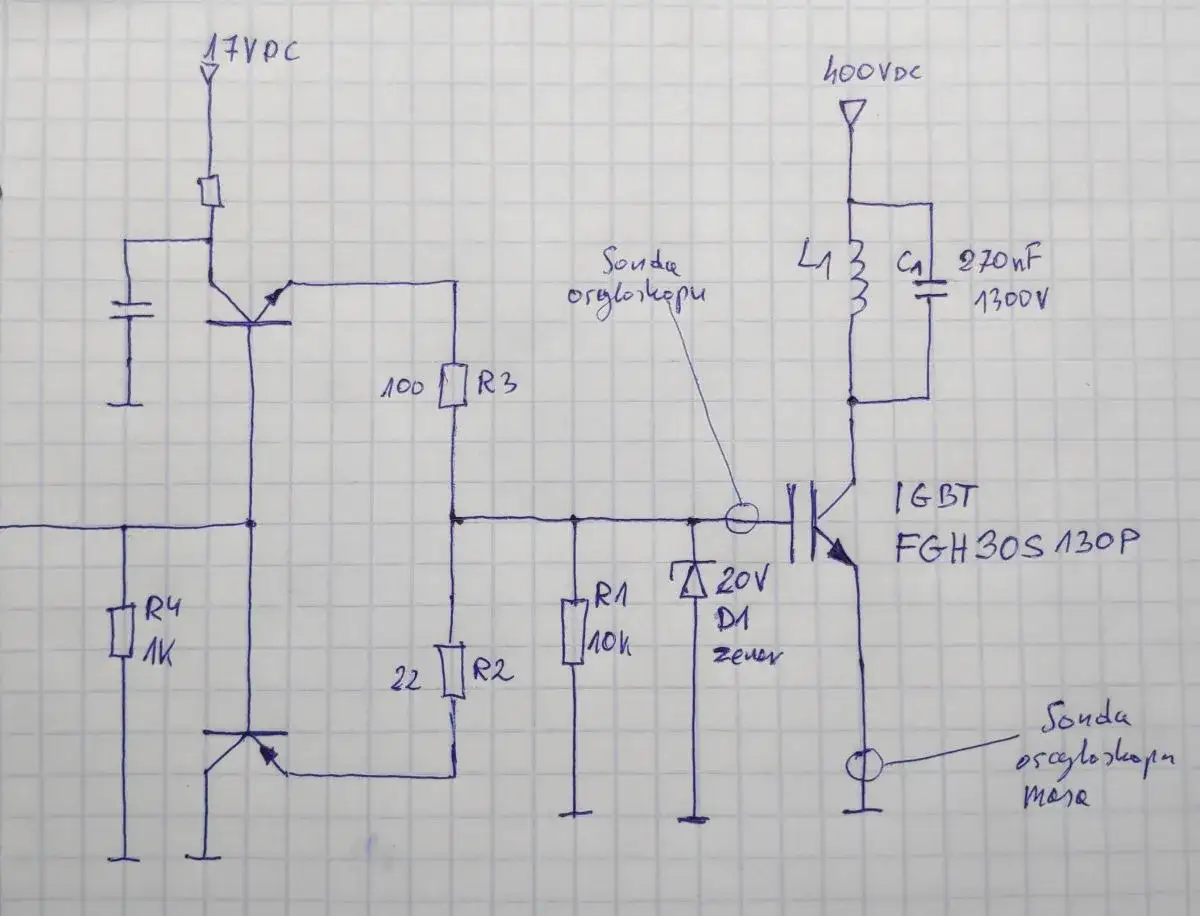 17VDC
400VDC
Sonda
oscyloskopu
L1
C1
270nF
1300V
100
R3
IGBT
FGH30S130P
R4
1K
22
R2
R1
10k
20V
D1
zener
Sonda
oscyloskopu
masa